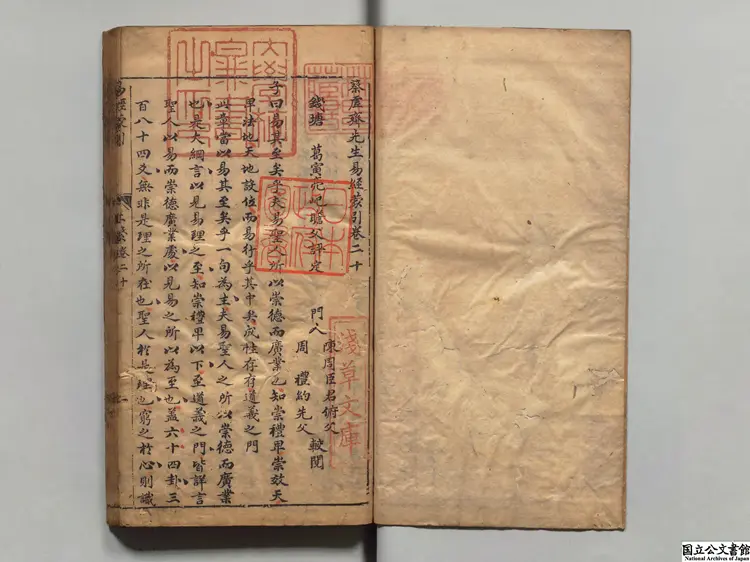 蔡虛齋先生易經蒙引卷二十
錢塘　葛寅亮屺瞻父評定
門人　陳周臣君俯父
周　禮約先父　較閱
子曰易其至矣乎夫易聖人所以崇德而廣業也知崇禮卑崇效天
卑法地天地設位而易行乎其中矣成性存存道義之門
此章當以易其至矣乎一句為主夫易聖人之所以崇德而廣業
也是大綱言以見易理之至知崇禮卑以下至道義之門皆詳言
聖人以易而崇德廣業處以見易之所以為至也蓋六十四卦三
百八十四爻無非是理之所在也聖人於是理也窮之於心則識
易經蒙引
卷二十
淺草文庫
日本政府圖書
國立公文書館
National Archives of Japan